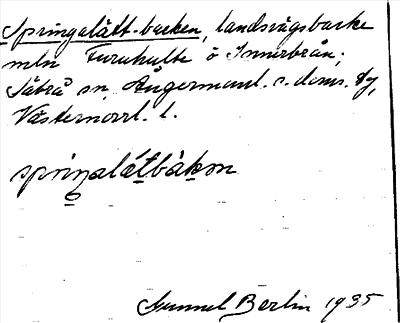 Springalått-backen, landsvägsbacke
mln Furuhulte o Innerbrån;
Säbrå sn, Ångermanl. s. doms. 
Västernorrl. l.
springalåtbakɔn
Gunnel Berlin 1935